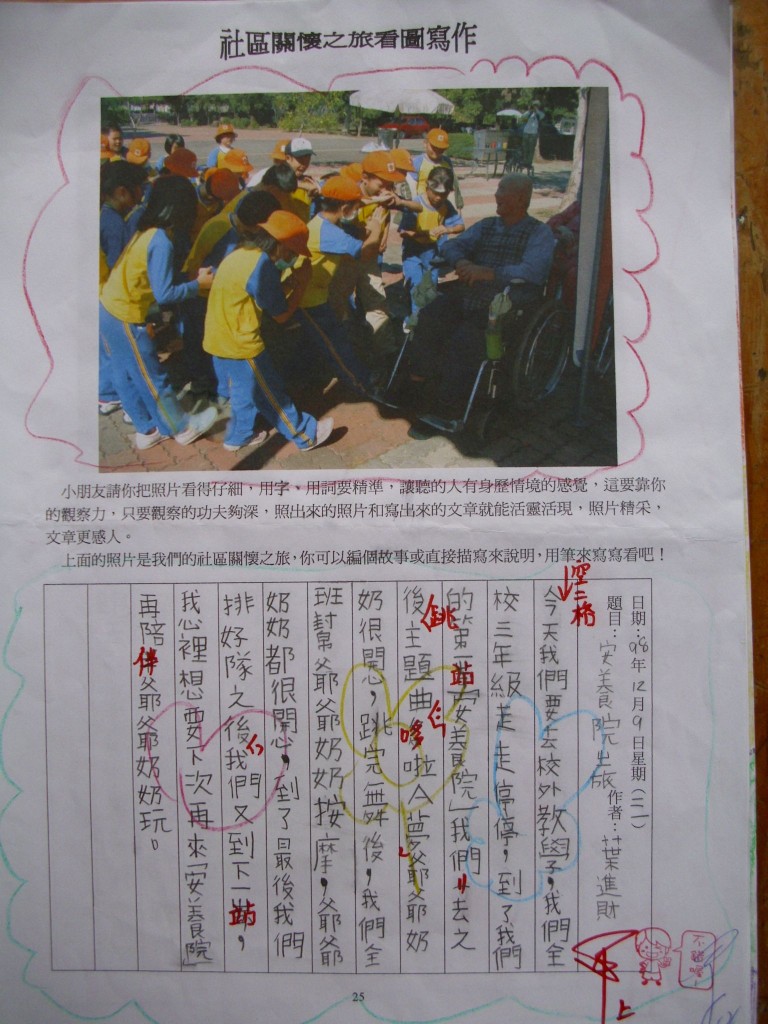 社區關懷之旅看圖寫作
小朋友請你把照片看得仔細，用字、用詞要精準，讓聽的人有身歷情境的感覺，這要靠你
的觀察力，只要觀察的功夫夠深，照出來的照片和寫出來的文章就能活靈活現，照片精采，
文章更感人。
上面的照片是我們的社區關懷之旅，你可以編個故事或直接描寫來說明，用筆來寫寫看吧！
日期：98年12月9日星期（二）
題目：安養院之旅 作者：葉進財
空二格
今天我們要去校外教學，我們全
校三年級走走停停，到了我們
的第一站「安養院」我們去之
後跳主題曲哆啦A夢爺爺奶
奶很開心，跳完舞後，我們全
班幫爺爺奶奶按摩，爺爺
奶奶都很開心，到了最後我們
排好隊之後我們又到下一站，
我心裡想要下次再來「安養院」
再陪伴爺爺奶奶玩。
上
25